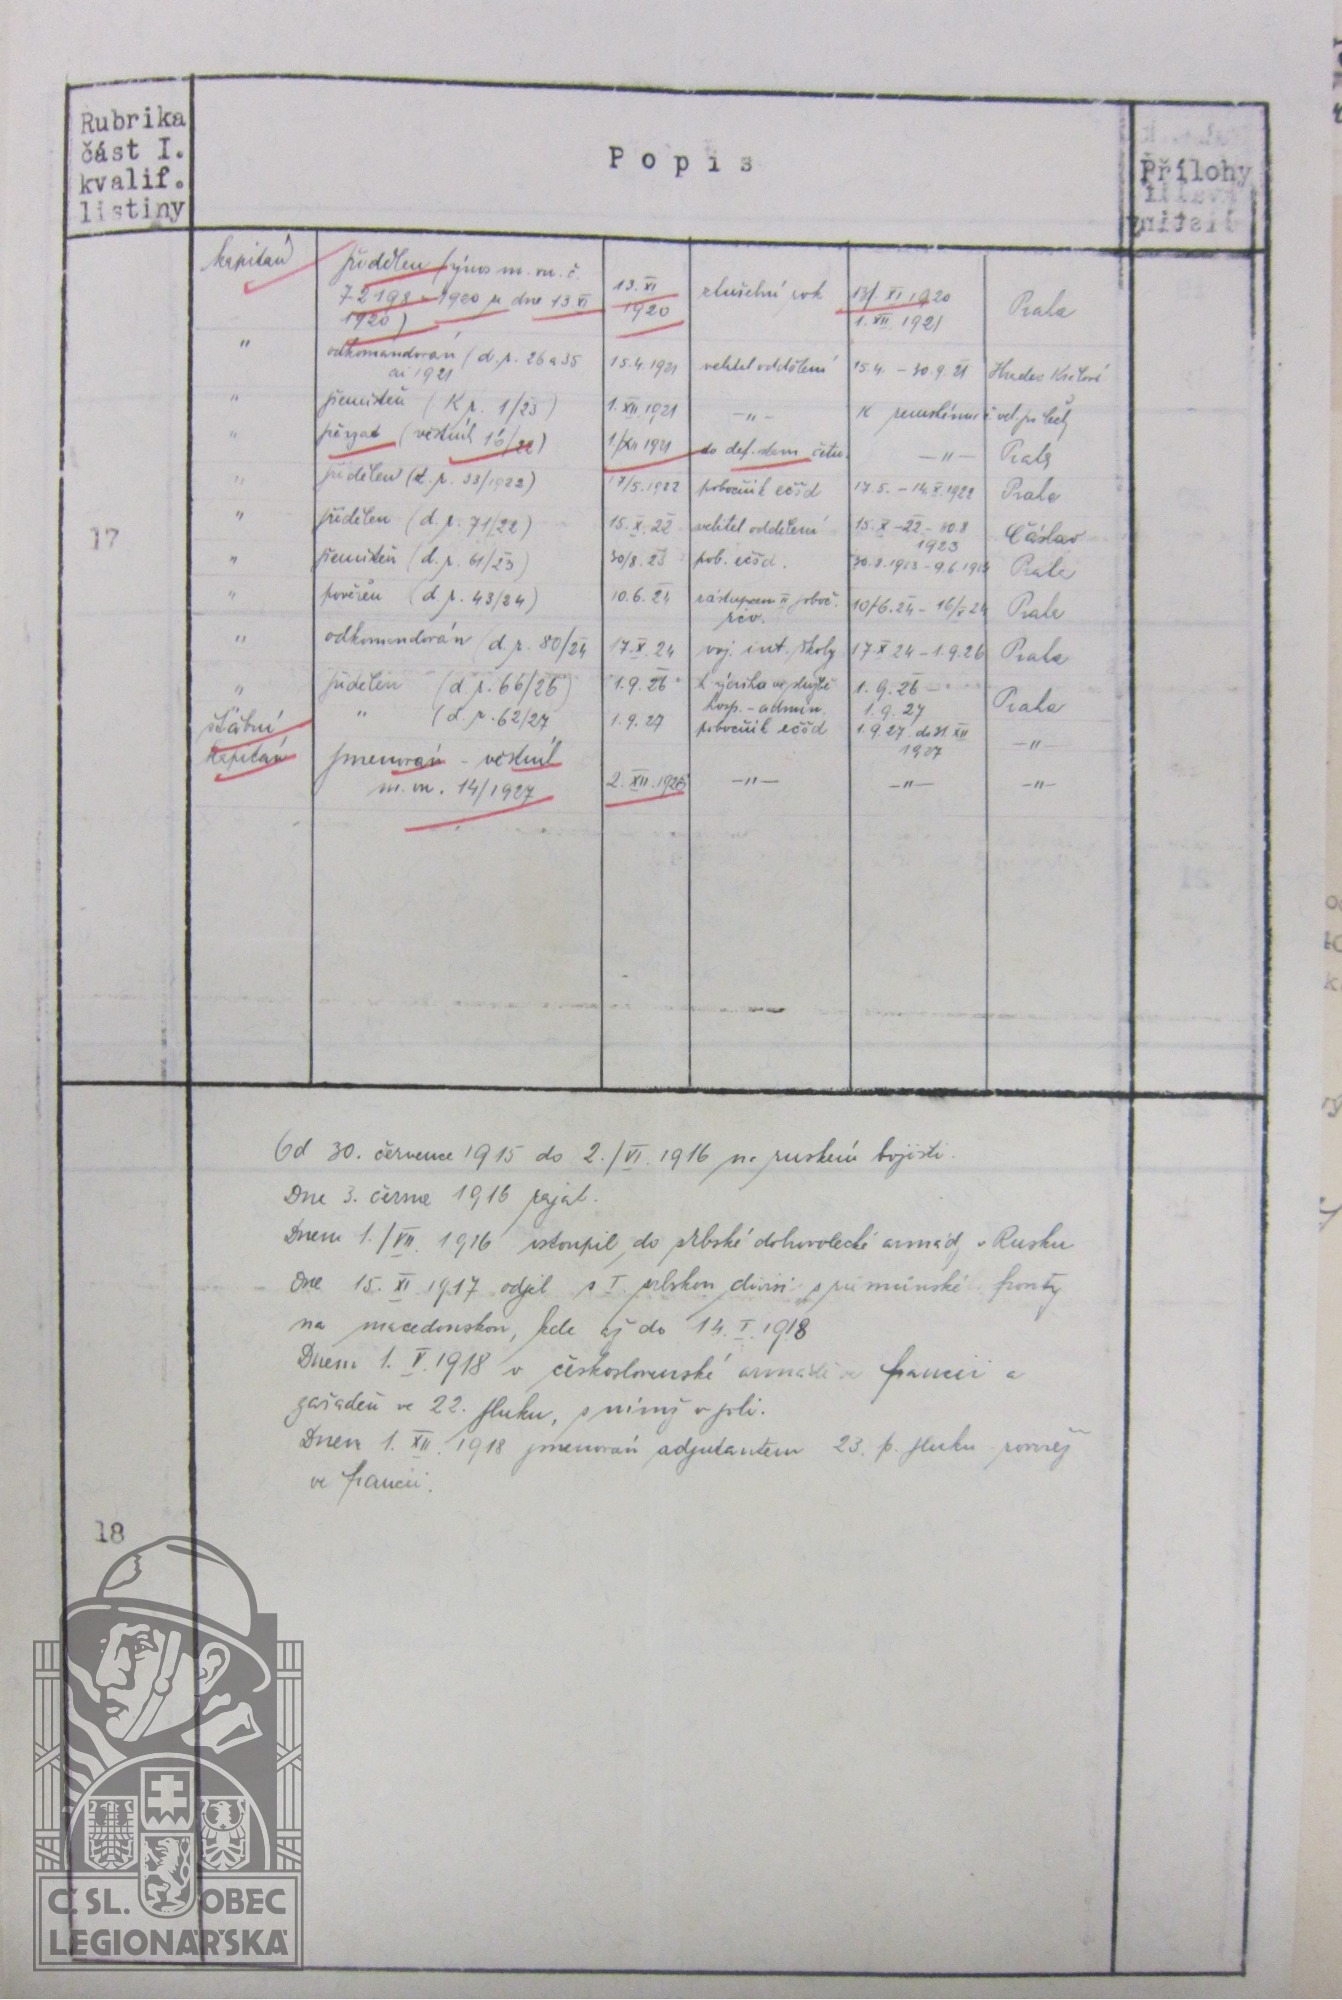 Rubrika
část I.
kvalif.
listiny
Popis
Přílohy
17
kapitán přidělen (výnos m. vn. č. 13. XI zkušební rok 13/. XI 1920 Praha
72198 - 1920 ze dne 13 XI 1920 1. XII 1921
1920)
" odkomandován (d. r. 26 a 35 15.4.1921 velitel oddělení 15.4. – 30.9.21 Hradec Králové
ai 1921
" přemístěn (K r. 1/23) 1. XII. 1921 –"– k zemskému č. vel. pro Čechy
" převzat (věstník 16/22) 1/XII 1921 do def. stavu četn. –"– Praha
" přidělen (d. r. 33/1922) 17/5.1922 pobočník 17.5. – 14. X. 1922 Praha
" přidělen (d. r. 71/22) 15. X. 22 velitel oddělení 15. X – 22 – 30.8 Čáslav
1923
" přemístěn (d. r. 61/23) 30/8. 23 pob. 30.8.1923 – 9.6.1924 Praha
" pověřen (d r. 43/24) 10.6.24 zástupce II poboč. 10/6.24 – 16/X 24 Praha
" odkomandován (d. r. 80/24 17. X. 24 voj. int. školy 17. X 24 – 1.9.26 Praha
" přidělen (d. r. 66/26) 1.9.26 k výcviku ve službě 1.9.26 – Praha
hosp. – admin. 1.9.27
štábní " (d. r. 62/27 1.9.27 pobočník 1.9.27 do 31. XII –"–
1927
kapitán jmenován – věstník
m. vn. 14/1927 2. XII. 1928 –"– –"– –"–
Od 30. července 1915 do 2./VI. 1916 na ruském bojišti.
Dne 3. června 1916 zajat.
Dnem 1./VII. 1916 vstoupil do srbské dobrovolecké armády v Rusku
Dne 15. XI. 1917 odjel s I. srbskou divisí s rumunské fronty
na macedonskou, kde až do 14. I. 1918
Dnem 1. V. 1918 v československé armádě ve Francii a
zařaděn ve 22. pluku, s nímž v poli.
Dnem 1. XII. 1918 jmenován adjutantem 23. p. pluku rovněž
ve Francii.
18
Č. SL. OBEC
LEGIONÁŘSKÁ